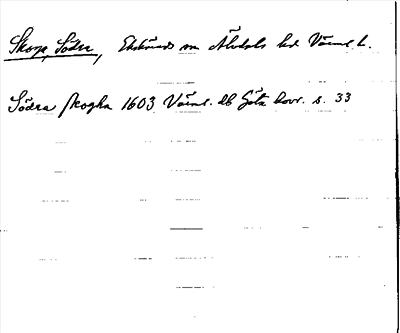 Skoga, Södra, Ekshärads sn Älvdals hd Värml. l.
Södra skogha 1603 Värml. db Göta hovr. s. 33